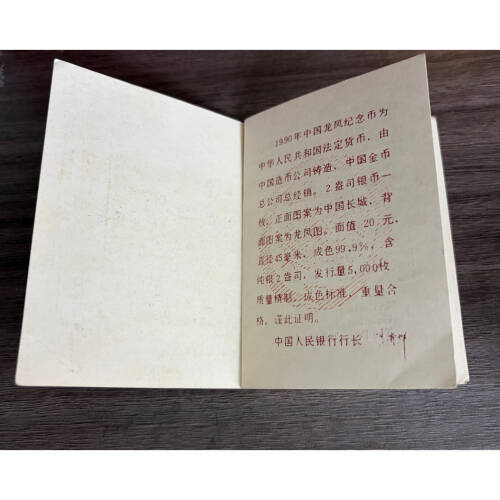 1990年中国龙凤纪念币为
中华人民共和国法定货币，由
中国造币公司铸造、中国金币
总公司总经销。2盎司银币一
枚，正面图案为中国长城，背
面图案为龙凤图。面值20元，
直径45毫米，成色99.9%，含
纯银2盎司，发行量5,000枚
质量精制、成色标准、重量合
格，谨此证明。
中国人民银行行长